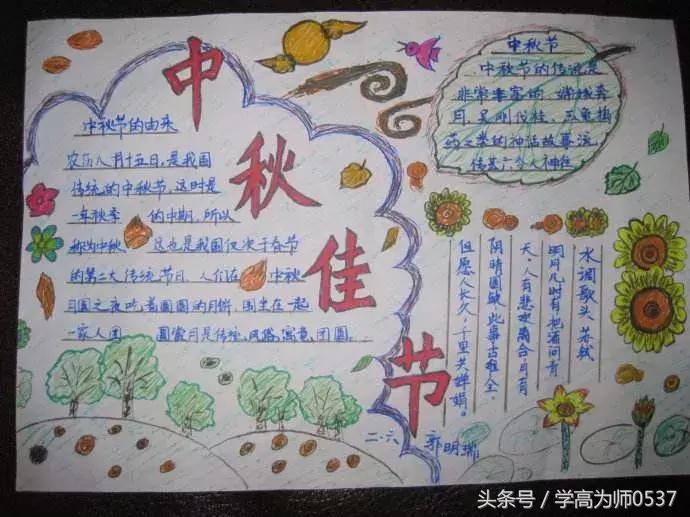 中秋佳节
中秋节的由来
农历八月十五日,是我国
传统的中秋节,这时是
一年秋季 的中期,所以
称为中秋 这也是我国仅次于春节
的第二大传统节日,人们在 中秋
月圆之夜吃着圆圆的月饼,围坐在一起
一家人团 圆赏月是传统风俗,寓意,团圆。
中秋节
中秋节的传说是
非常丰富的,嫦娥奔
月,吴刚伐桂,玉兔捣
药之类的神话故事流
传甚
水调歌头 苏轼
明月几时有把酒问青
天,人有悲欢离合月有
阴晴圆缺,此事古难全。
但愿人长久,千里共婵娟。
二.六 郭明瑞
头条号/学高为师0537